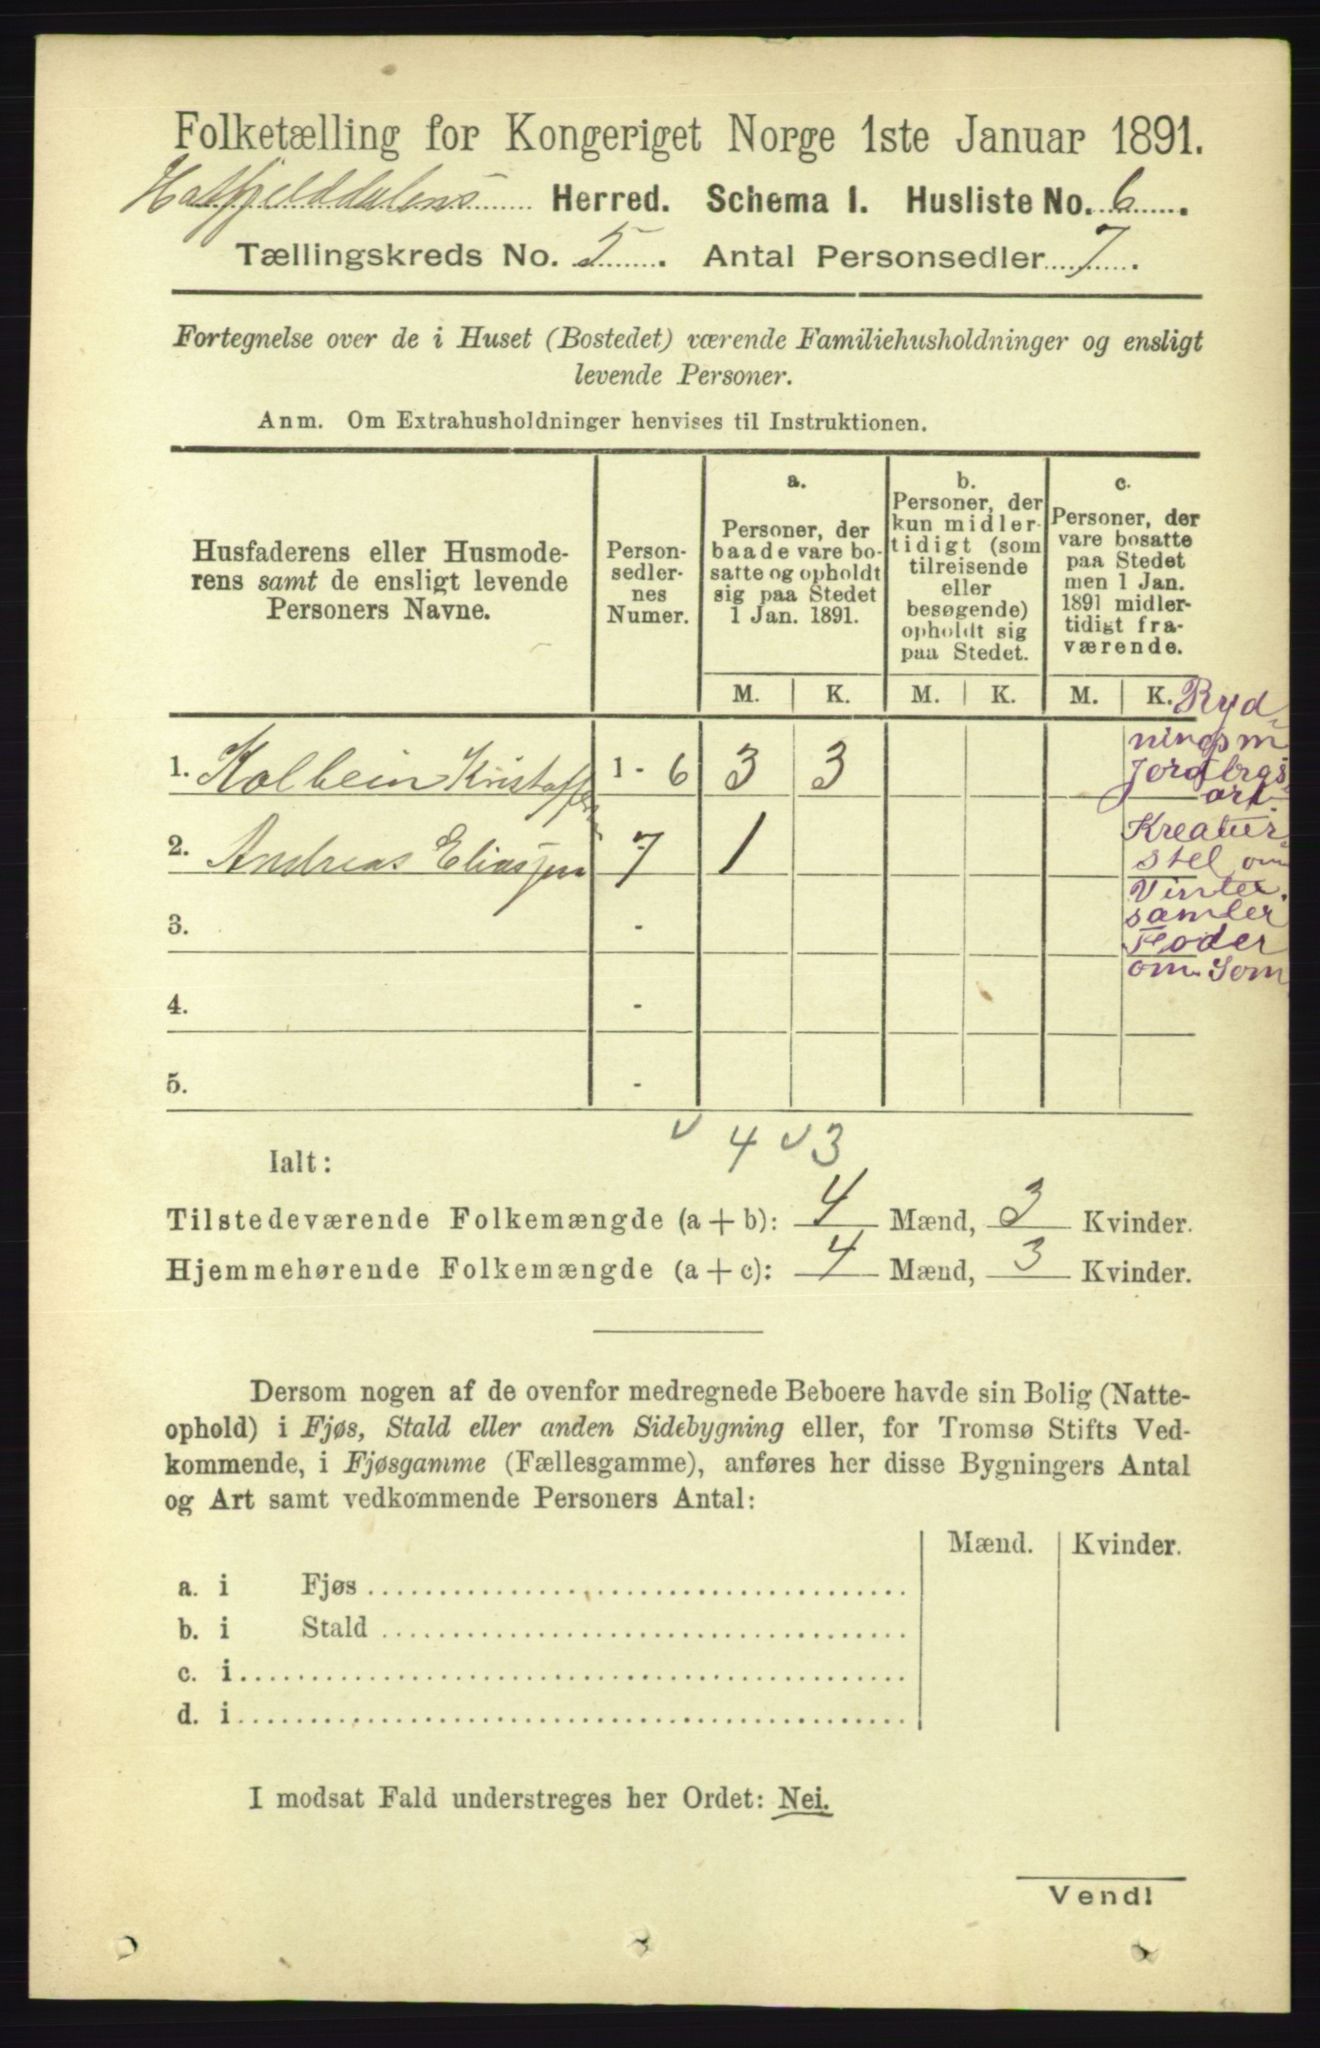 Folketælling for Kongeriget Norge 1ste Januar 1891.
Hatfjelddalens Herred. Schema I. Husliste No. 6.
Tællingskreds No. 5. Antal Personsedler 7.
Fortegnelse over de i Huset (Bostedet) værende Familiehusholdninger og ensligt
levende Personer.
Anm. Om Extrahusholdninger henvises til Instruktionen.
Husfaderens eller Husmode-
rens samt de ensligt levende
Personers Navne.
Person-
sedler-
nes
Numer.
a.
Personer, der
baade vare bo-
satte og opholdt
sig paa Stedet
1 Jan. 1891.
b.
Personer, der
kun midler-
tidigt (som
tilreisende
eller
besøgende)
opholdt sig
paa Stedet.
c.
Personer, der
vare bosatte
paa Stedet
men 1 Jan.
1891 midler-
tidigt fra-
værende.
M. K. M. K. M. K.
1. Kolbein Kristoffersen 1 - 6 3 3
2. Andreas Eliassen 7 1
3. -
4. -
5. -
Ryd-
ningsm
Jordbrgs
art
Kreatur-
stel om
Vinter.
samler
Foder
om Som
4 3
Ialt:
Tilstedeværende Folkemængde (a + b): 4 Mænd, 3 Kvinder.
Hjemmehørende Folkemængde (a + c): 4 Mænd, 3 Kvinder.
Dersom nogen af de ovenfor medregnede Beboere havde sin Bolig (Natte-
ophold) i Fjøs, Stald eller anden Sidebygning eller, for Tromsø Stifts Ved-
kommende, i Fjøsgamme (Fællesgamme), anføres her disse Bygningers Antal
og Art samt vedkommende Personers Antal:
Mænd. Kvinder.
a. i Fjøs
b. i Stald
c. i
d. i
I modsat Fald understreges her Ordet: Nei.
Vend!